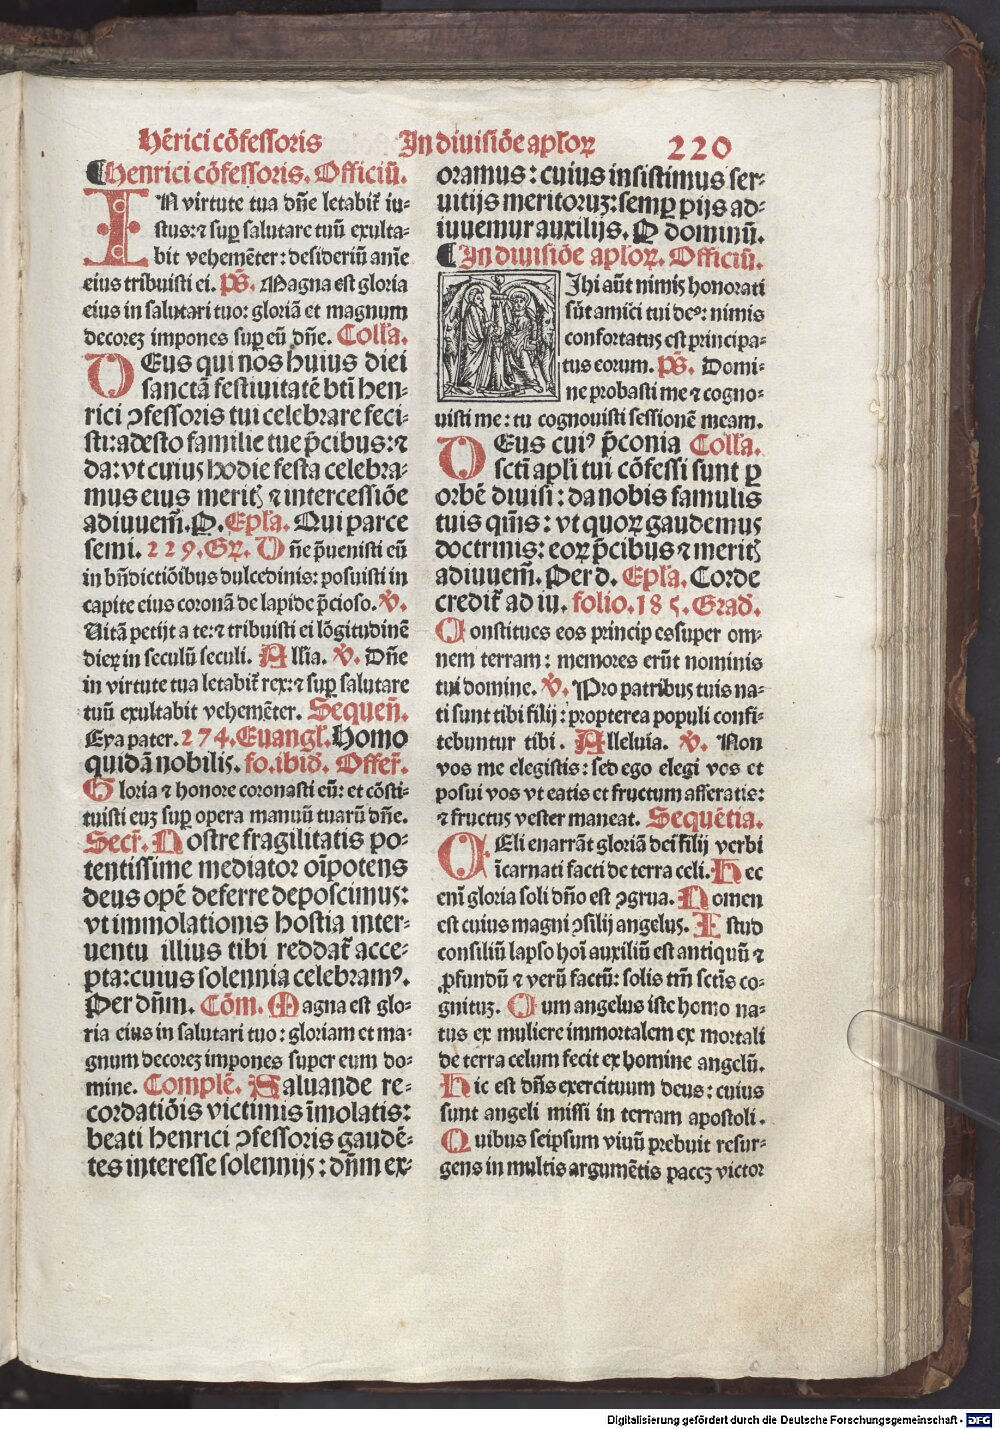 Hērici cōfessoris In diuisiōe aploꝝ 220
¶Henrici cōfessoris. Officiū.
IN virtute tua dn̄e letabit̄ iu-
stus: ⁊ sup̄ salutare tuū exulta-
bit vehemēter: desideriū anīe
eius tribuisti ei. Ps̄. Magna est gloria
eius in salutari tuo: gloriā et magnum
decoreꝫ impones sup̄ eū dn̄e. Coll'a.
DEus qui nos huius diei
sanctā festiuitatē bt̄i hen-
rici ꝯfessoris tui celebrare feci-
sti: adesto familie tue p̄cibus: ⁊
da: vt cuius hodie festa celebra-
mus eius merit̄ ⁊ intercessiōe
adiuuem̄. P. Epl'a. Qui parce
semi. 229. Gr̄. Dn̄e p̄uenisti eū
in bn̄dictiōibus dulcedinis: posuisti in
capite eius coronā de lapide p̄cioso. V̄.
Uitā petijt a te: ⁊ tribuisti ei lōgitudinē
dieꝝ in seculū seculi. All'ia. V̄. Dn̄e
in virtute tua letabit̄ rex: ⁊ sup̄ salutare
tuū exultabit vehemēter. Sequen̄.
Eya pater. 274. Euangl'. Homo
quidā nobilis. fo. ibid̄. Offer̄.
Gloria ⁊ honore coronasti eū: et cōsti-
tuisti euꝫ sup̄ opera manuū tuarū dn̄e.
Secr̄. Nostre fragilitatis po-
tentissime mediator oīpotens
deus opē deferre deposcimus:
vt immolationis hostia inter-
uentu illius tibi reddat̄ acce-
pta: cuius solennia celebramꝰ.
Per dn̄m. Cōm. Magna est glo-
ria eius in salutari tuo: gloriam et ma-
gnum decoreꝫ impones super eum do-
mine. Complē. Saluande re-
cordatiōis victimis īmolatis:
beati henrici ꝯfessoris gaudē-
tes interesse solennijs: dn̄m ex-
oramus: cuius insistimus ser-
uitijs meritoruꝫ: semp̄ pijs ad-
iuuemur auxilijs. P dominū.
¶In diuisiōe aploꝝ. Officiū.
Ihi aūt nimis honorati
sūt amici tui deꝰ: nimis
confortatꝰ est principa-
tus eorum. Ps̄. Domi-
ne probasti me ⁊ cogno-
uisti me: tu cognouisti sessionē meam.
DEus cuiꝰ p̄conia Coll'a.
sct̄i apl'i tui cōfessi sunt ꝑ
orbē diuisi: da nobis famulis
tuis qm̄s: vt quoꝝ gaudemus
doctrinis: eoꝝ p̄cibus ⁊ merit̄
adiuuem̄. Per d. Epl'a. Corde
credit̄ ad iu. folio. 185. Grad̄.
Constitues eos principes super om-
nem terram: memores erūt nominis
tui domine. V̄. Pro patribus tuis na-
ti sunt tibi filij: propterea populi confi-
tebuntur tibi. Alleluia. V̄. Non
vos me elegistis: sed ego elegi vos et
posui vos vt eatis et fructum afferatis:
⁊ fructus vester maneat. Sequētia.
CEli enarrāt gloriā dei filij verbi
īcarnati facti de terra celi. Hec
eni gloria soli dn̄o est ꝯgrua. Nomen
est cuius magni ꝯsilij angelus. Istud
consiliū lapso hoī auxiliū est antiquū ⁊
ꝓfundū ⁊ verū factū: solis tm̄ sct̄is co-
gnituꝫ. Cum angelus iste homo na-
tus ex muliere immortalem ex mortali
de terra celum fecit ex homine angelū.
Hic est dn̄s exercituum deus: cuius
sunt angeli missi in terram apostoli.
Quibus seipsum viuū prebuit resur-
gens in multis argumētis paceꝫ victor
Digitalisierung gefördert durch die Deutsche Forschungsgemeinschaft - DFG